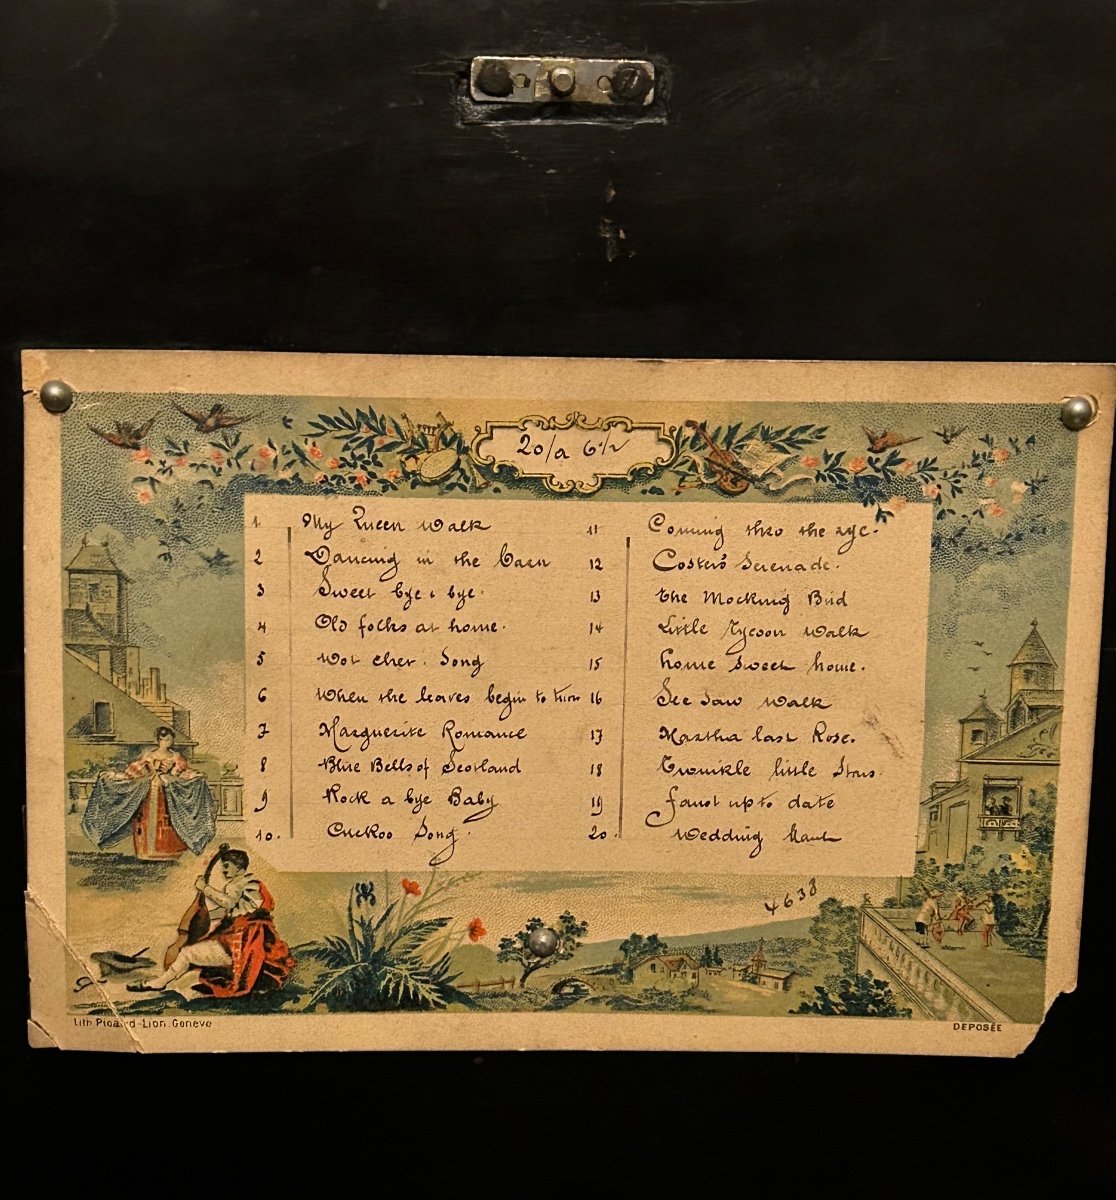 20/a 6½
1 My Queen walk
2 Dancing in the barn
3 Sweet bye & bye.
4 Old folks at home.
5 Wot cher. Song
6 When the leaves begin to turn
7 Marguerite Romance
8 Blue Bells of Scotland
9 Rock a bye Baby
10. Cuckoo Song.
11 Coming thro the rye.
12 Coster's Serenade.
13 The Mocking Bird
14 Little Tycoon walk
15 home sweet home.
16 See Saw walk
17 Martha last Rose.
18 Twinkle little Stars.
19 faust up to date
20. Wedding
4638
Lith. Picard-Lion. Genève
DEPOSÉE